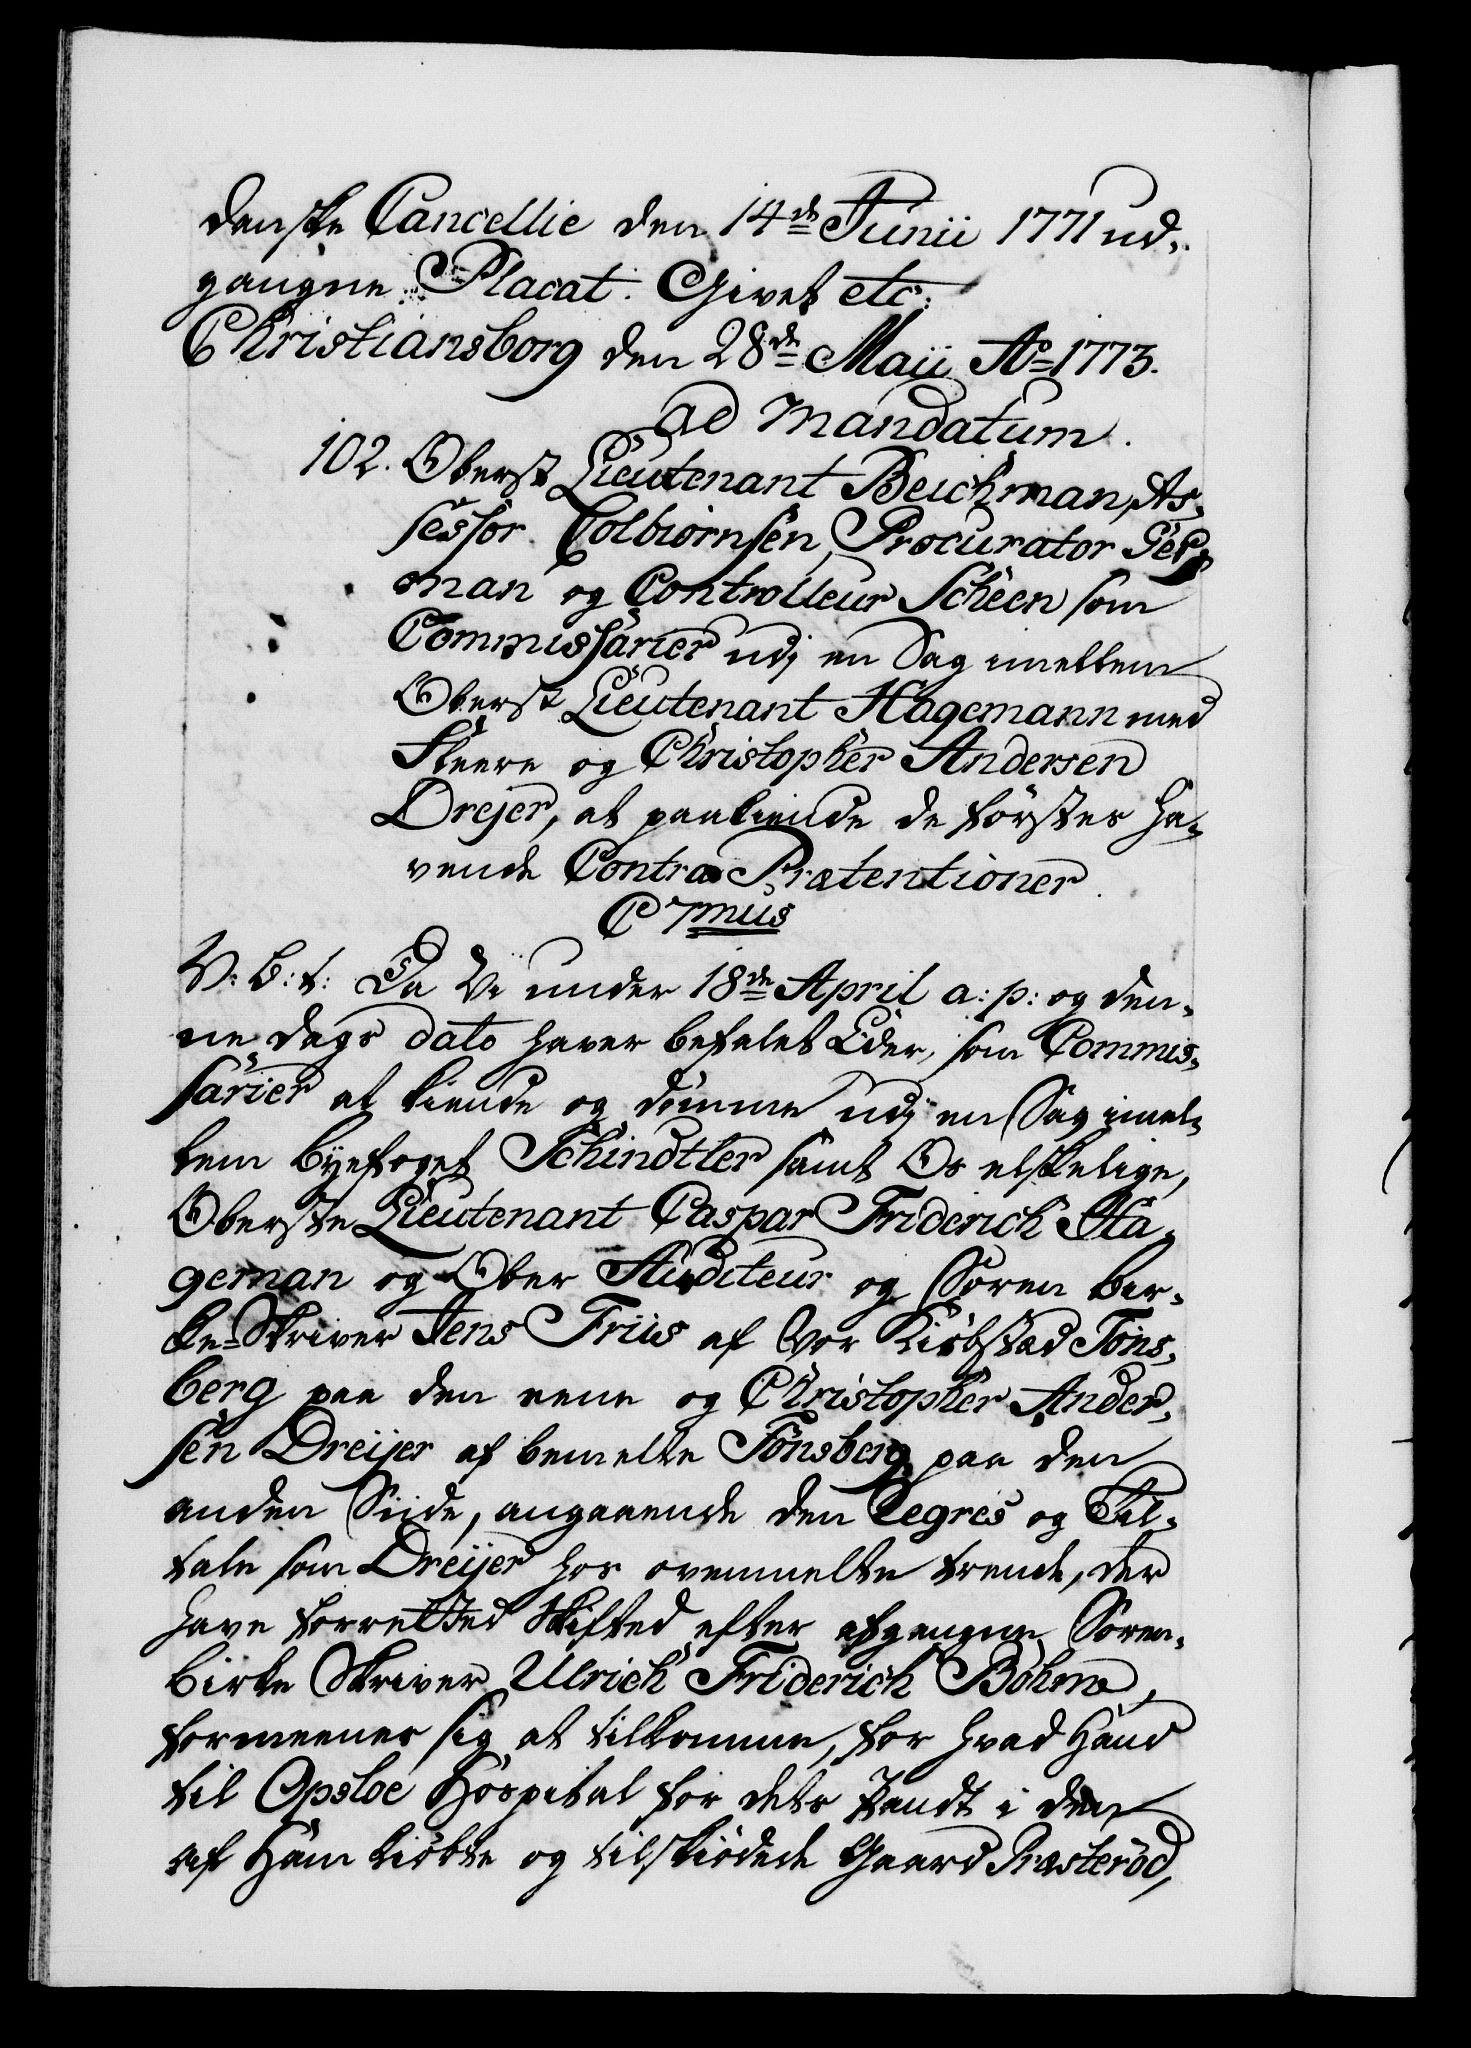 danske Cancellie den 14de Junii 1771 ud-
gangne Placat. Givet etc:
Christiansborg den 28de Maii Ao 1773.
ad Mandatum.
102. Oberst Lieutenant Beichman, As-
sessor Colbiørnsen, Procurator
man og Controlleur Scheen som
Commissarier udj en Sag imellem
Oberst Lieutenant Hagemann med
Fleere og Christopher Andersen
Drejer, at paakiende de førstes ha-
vende Contra Prætentioner.
C 7mus
V: G: t: Da Vi under 18de April a: p: og den-
ne Dags dato haver befalet Eder, som Commis-
sarier at kiende og dømme udj en Sag imel-
lem Byefoget Schindtler samt Os elskelige,
Oberste Lieutenant Caspar Friderich Ha-
geman og Ober Auditeur og Soren bir-
ke-Skriver Jens Friis af Vor Kiøbstad Tøns-
berg paa den eene og Christopher Ander-
sen Dreijer af bemelte Tønsberg paa den
anden Siide, angaaende den Regres og Til-
tale som Dreijer hos ovenmelte trende, der
have forretted Skifted efter afgangne Soren-
birke Skriver Ulrich Friderich Bøhme,
formeener sig at tilkomme, for hvad Hand
til Opsloe Hospital for dets Pandt i den
af Ham kiøbte og tilskiødede Gaard Præsterød,